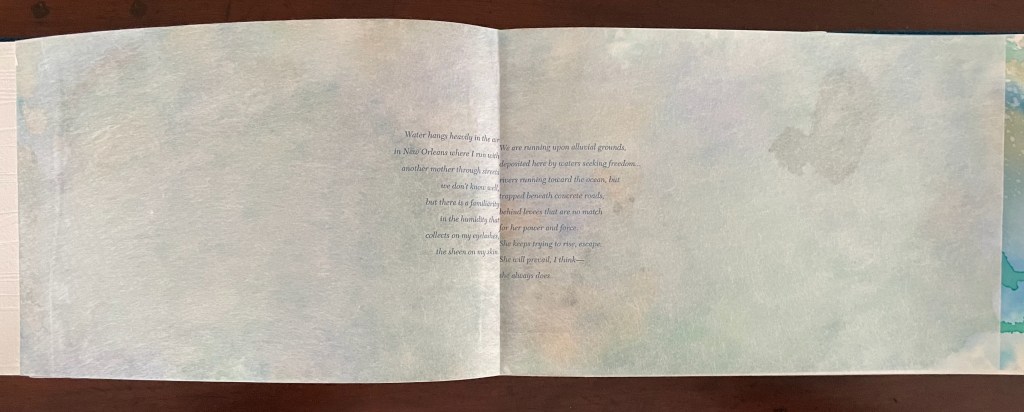 Water hangs heavily in the air
in New Orleans where I run with
another mother through streets
we don't know well,
but there is a familiarity
in the humidity that
collects on my eyelashes,
the sheen on my skin.
We are running upon alluvial grounds,
deposited here by waters seeking freedom...
rivers running toward the ocean, but
trapped beneath concrete roads,
behind levees that are no match
for her power and force.
She keeps trying to rise, escape.
She will prevail, I think—
she always does.